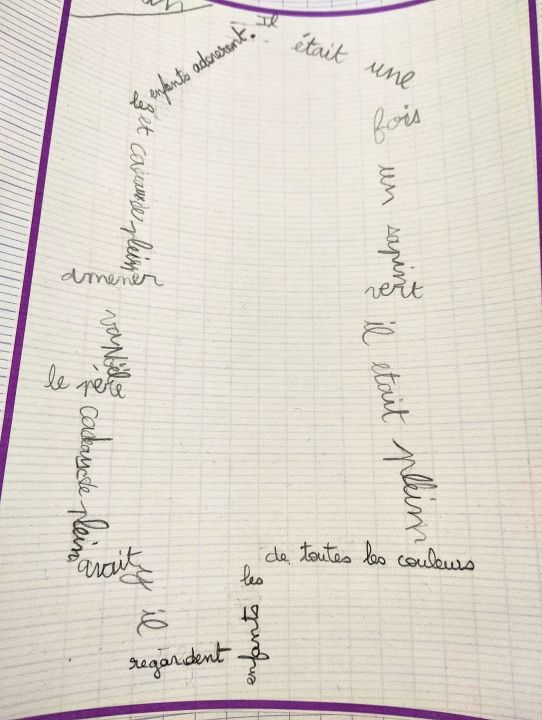 Il était une
fois
un sapin
vert
il etait plein
de toutes les couleurs
les
enfants
regardent
il
y
avait
plein
de
cadeaux
le père
Noël
va
amener
plein
de
cadeaux
et
les
enfants adorerent.